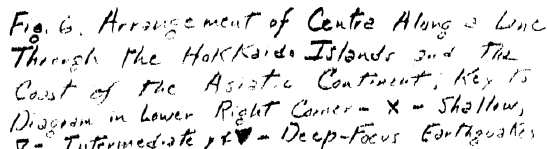 Fig. 6. Arrangement of Centra Along a Line
Through the Hokkaido Islands and the
Coast of the Asiatic Continent; Key to
Diagram in Lower Right Corner - X - Shallow,
▽ - Intermediate, ♥ - Deep-Focus Earthquakes